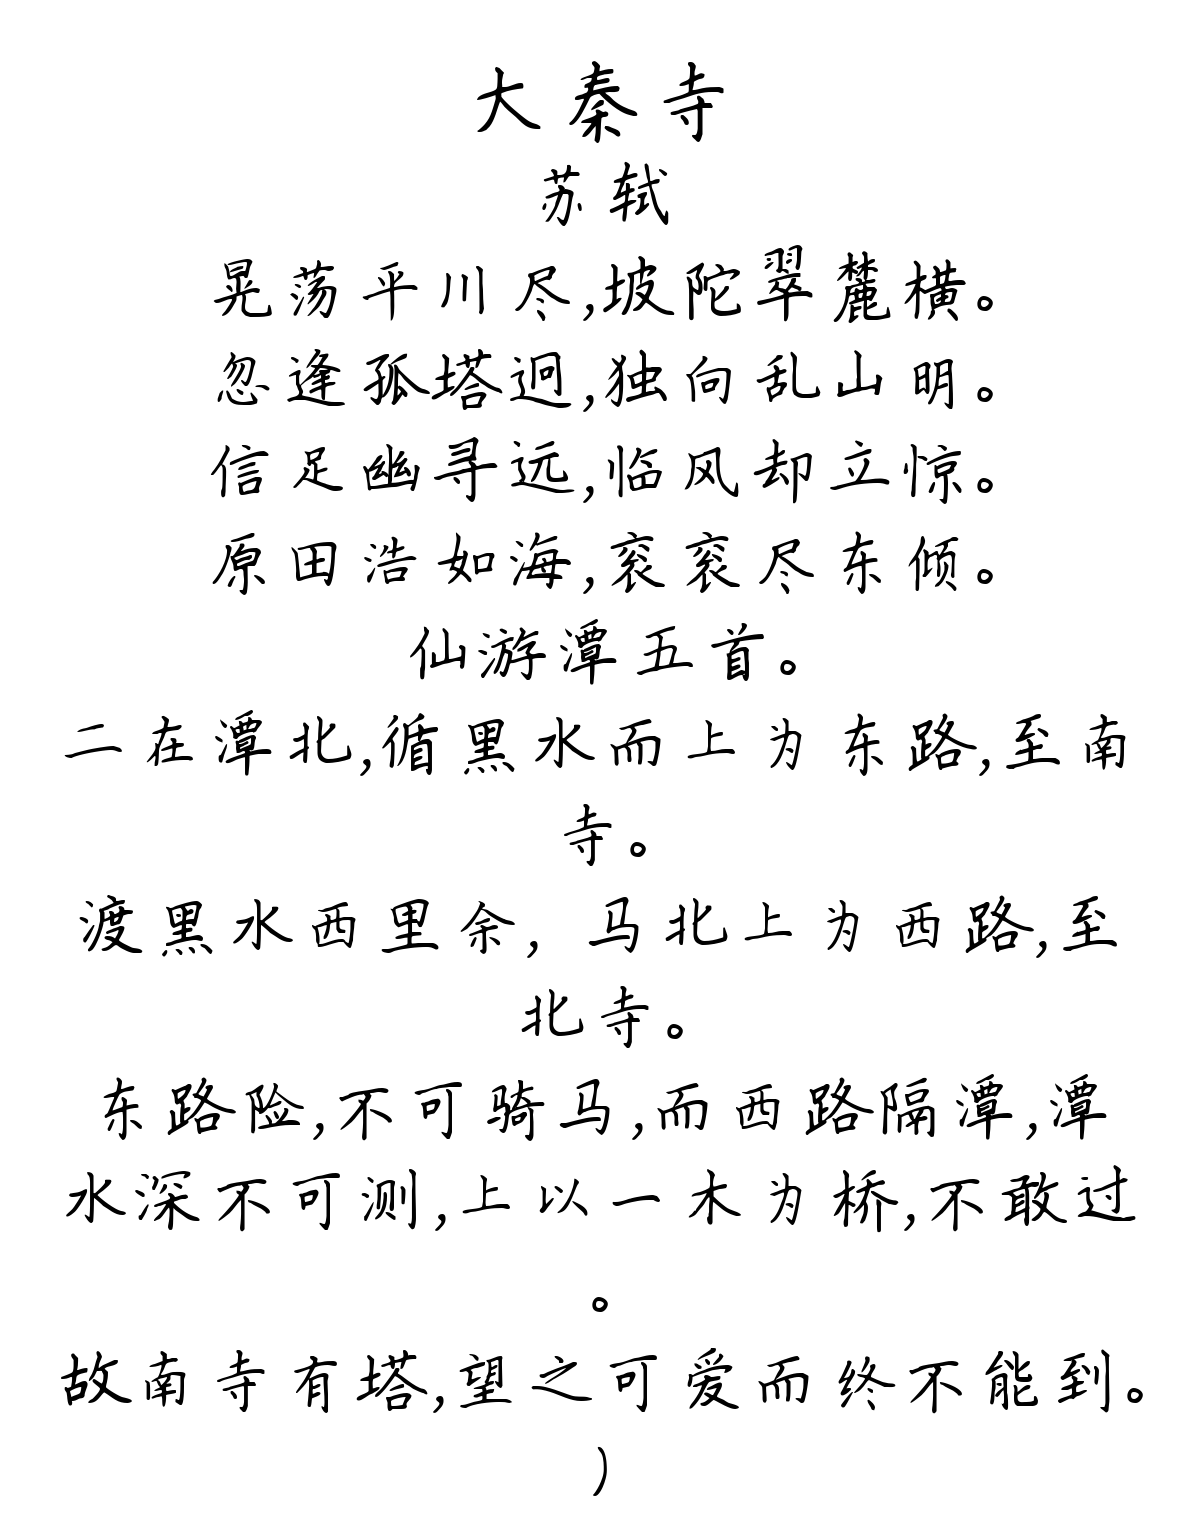 大秦寺
苏轼
晃荡平川尽,坡陀翠麓横。
忽逢孤塔迥,独向乱山明。
信足幽寻远,临风却立惊。
原田浩如海,衮衮尽东倾。
仙游潭五首。
二在潭北,循黑水而上为东路,至南
寺。
渡黑水西里余，马北上为西路,至
北寺。
东路险,不可骑马,而西路隔潭,潭
水深不可测,上以一木为桥,不敢过
。
故南寺有塔,望之可爱而终不能到。
）